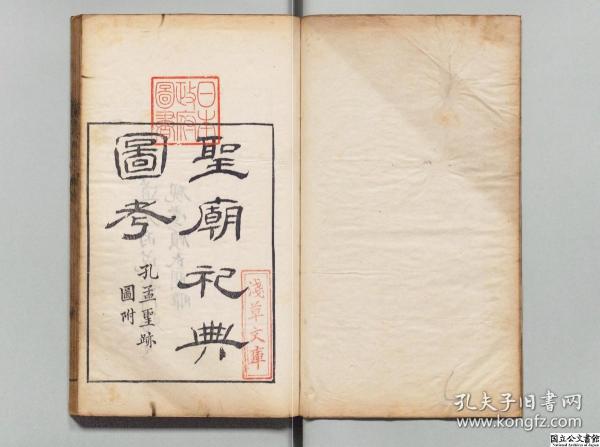 聖廟祀典
圖考
孔孟聖跡
圖附
日本
政府
圖書
淺草文庫
孔夫子旧书网
www.kongfz.com
国立公文書館
National Archives of Japan